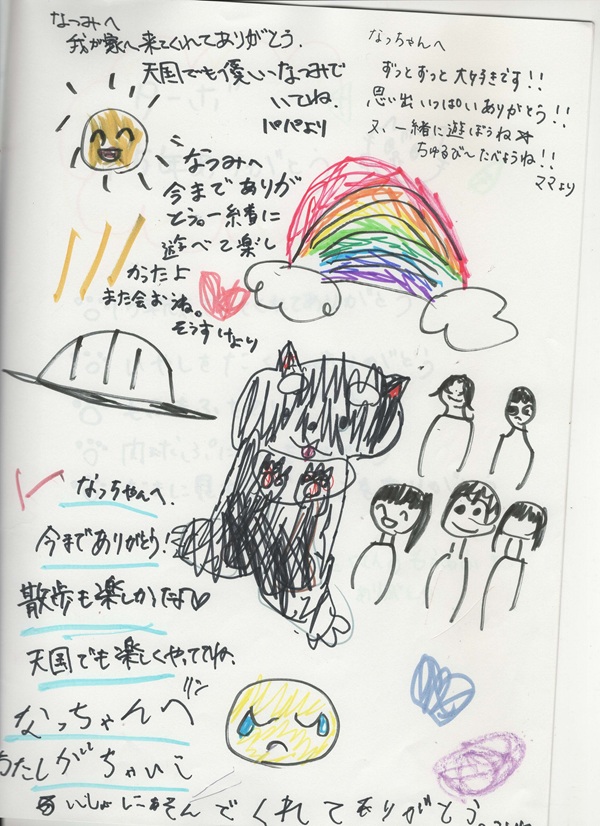 なつみへ
我が家へ来てくれてありがとう。
天国でも優しいなつみで
いてね。
パパより
なっちゃんへ
ずっとずっと大好きです!!
思い出いっぱいありがとう!!
又、一緒に遊ぼうね☆
ちゅるびーたべようね!!
ママより
なつみへ
今までありが
とう。一緒に
遊べて楽し
かったよ
また会おうね。
そうすけより
なっちゃんへ。
今までありがとう!
散歩も楽しかったよ♡
天国でも楽しくやっててね。
リン
なっちゃんへ
わたしがちいさい
いっしょにあそんでくれてありがとう